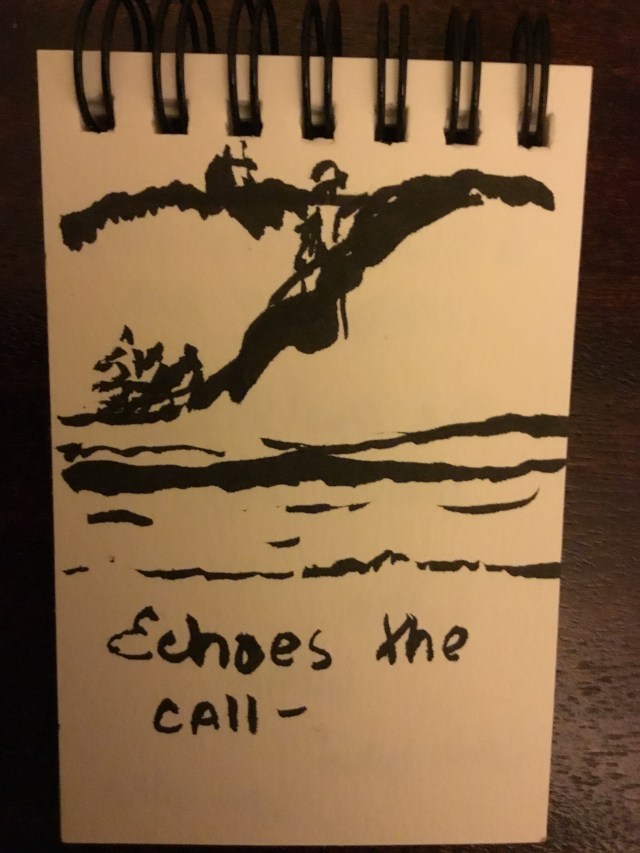 Echoes the
call-